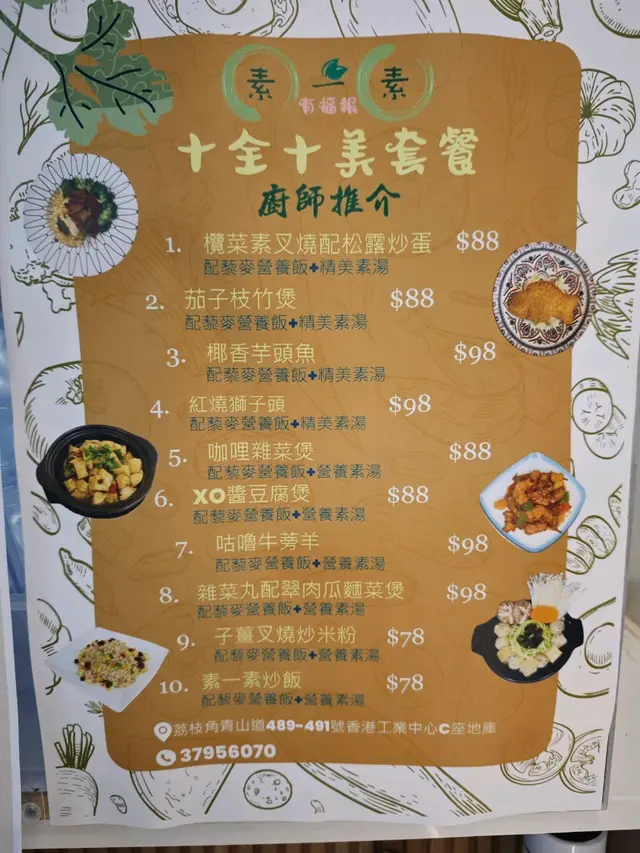 素一素
有福報
十全十美套餐
廚師推介
1. 欖菜素叉燒配松露炒蛋 $88
配藜麥營養飯+精美素湯
2. 茄子枝竹煲 $88
配藜麥營養飯+精美素湯
3. 椰香芋頭魚 $98
配藜麥營養飯+精美素湯
4. 紅燒獅子頭 $98
配藜麥營養飯+精美素湯
5. 咖哩雜菜煲 $88
配藜麥營養飯+營養素湯
6. XO醬豆腐煲 $88
配藜麥營養飯+營養素湯
7. 咕嚕牛蒡羊 $98
配藜麥營養飯+營養素湯
8. 雜菜丸配翠肉瓜麵菜煲 $98
配藜麥營養飯+營養素湯
9. 子薑叉燒炒米粉 $78
配藜麥營養飯+營養素湯
10. 素一素炒飯 $78
配藜麥營養飯+營養素湯
荔枝角青山道489-491號香港工業中心C座地庫
37956070